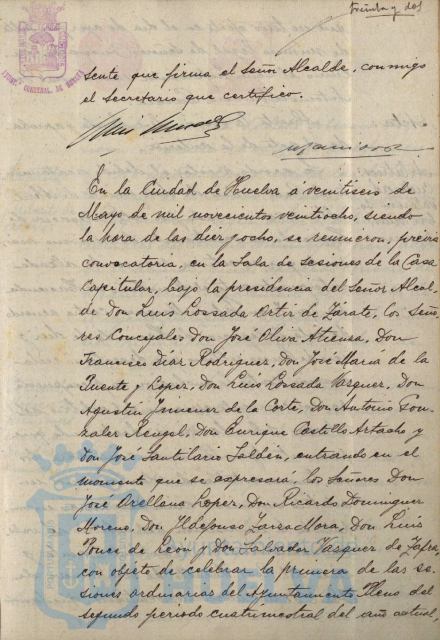 treinta y dos
sente que firma el Señor Alcalde, conmigo
el Secretario que certifico.
En la Ciudad de Huelva a veintiseis de
Mayo de mil novecientos veintiocho, siendo
la hora de las diez y ocho, se reunieron, previa
convocatoria, en la Sala de sesiones de la Casa
Capitular, bajo la presidencia del Señor Alcal-
de Don Luis Lossada Ortiz de Zárate, los Seño-
res Concejales Don José Oliva Atienza, Don
Francisco Díaz Rodríguez, Don José María de la
Puente y Lopez, Don Luis Lossada Vazquez, Don
Agustín Jimenez de la Corte, Don Antonio Gon-
zalez Rengel, Don Enrique Castillo Artacho y
Don José Santilario Saldén, entrando en el
momento que se expresará, los Señores Don
José Orellana Lopez, Don Ricardo Dominguez
Moreno, Don Ildefonso Mora, Don Luis
Ponce de Leon y Don Salvador Vazquez de Zafra,
con objeto de celebrar la primera de las se-
siones ordinarias del Ayuntamiento Pleno del
segundo periodo cuatrimestral del año actual,
HUELVA